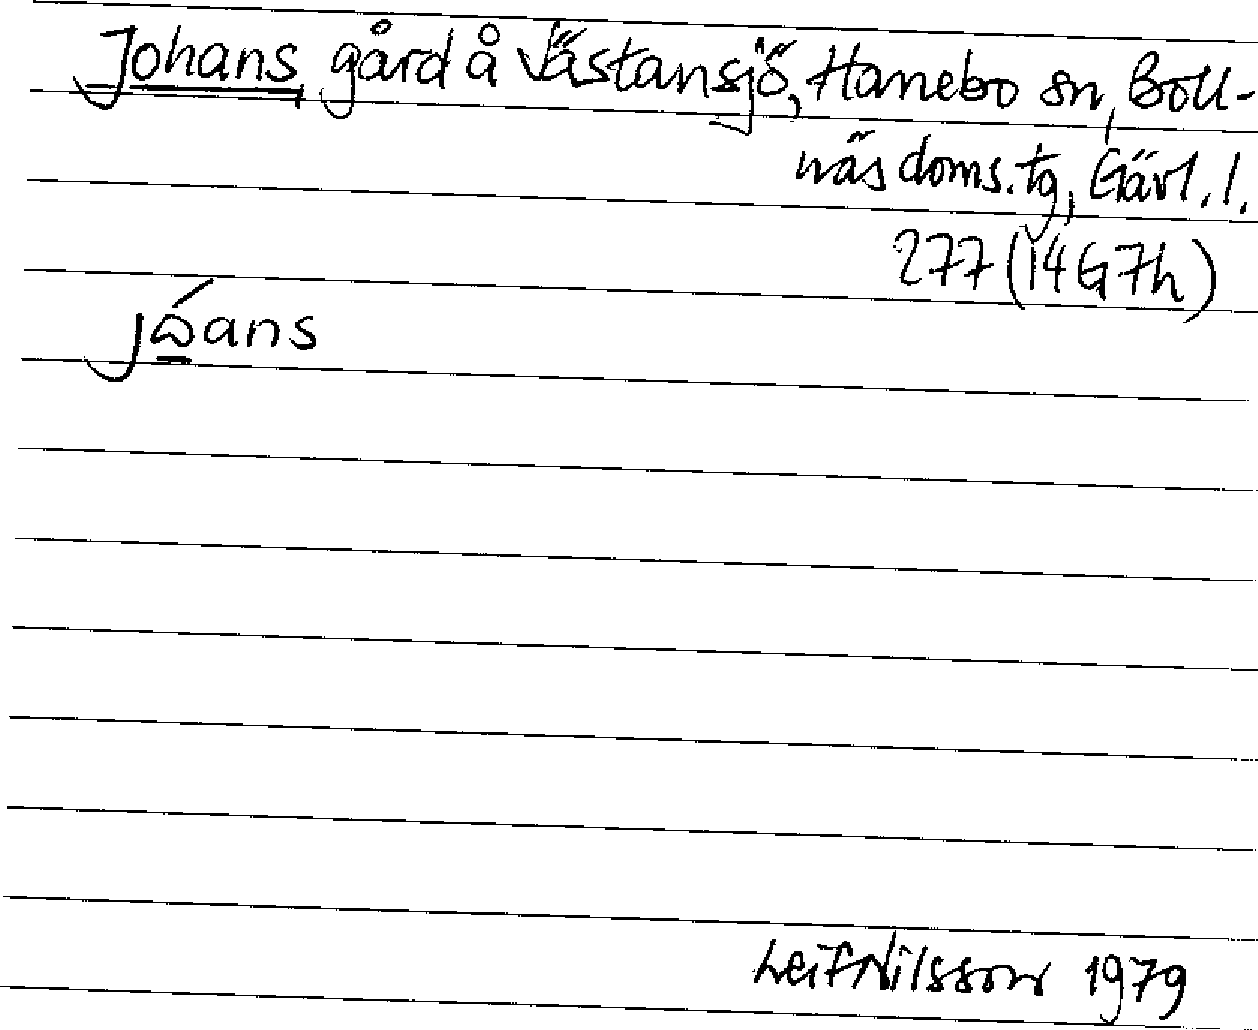 Johans, gård å Västansjö, Hanebo sn, Boll-
näs doms.tg, Gävl.l.
277 (14G7h)
Leif Nilsson 1979